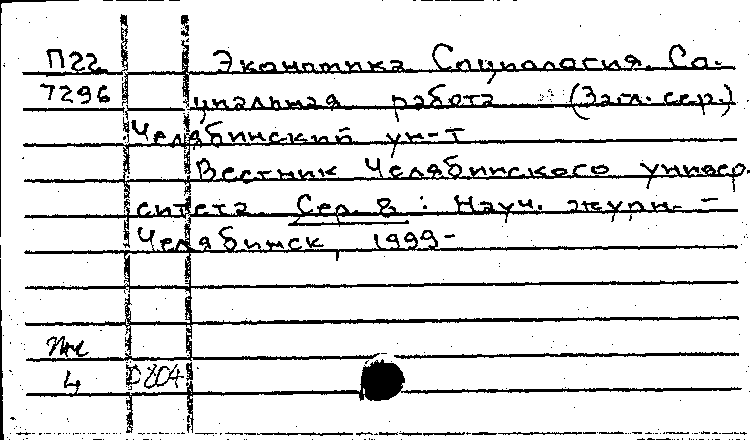 П22 Экономика. Социология. Со-
7296 циальная работа (Загл. сер.)
Челябинский ун-т
Вестник Челябинского универ-
ситета. Сер. 8 : Науч. журн. -
Челябинск, 1999-
4 0204